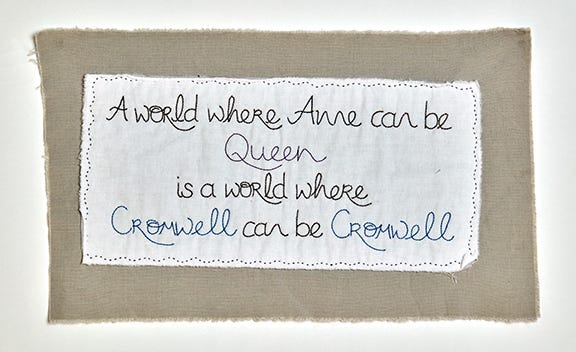 A world where Anne can be
Queen
is a world where
Cromwell can be Cromwell